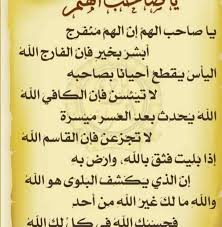 يا صاحب الهم
يا صاحب الهم إن الهم منفرج
أبشر بخير فإن الفارج الله
اليأس يقطع أحيانا بصاحبه
لا تيئسن فإن الكافي الله
الله يحدث بعد العسر ميسرة
لا تجزعن فإن القاسم الله
إذا بليت فثق بالله، وارض به
إن الذي يكشف البلوى هو الله
والله ما لك غير الله من أحد
فحسبك الله في كل لك الله